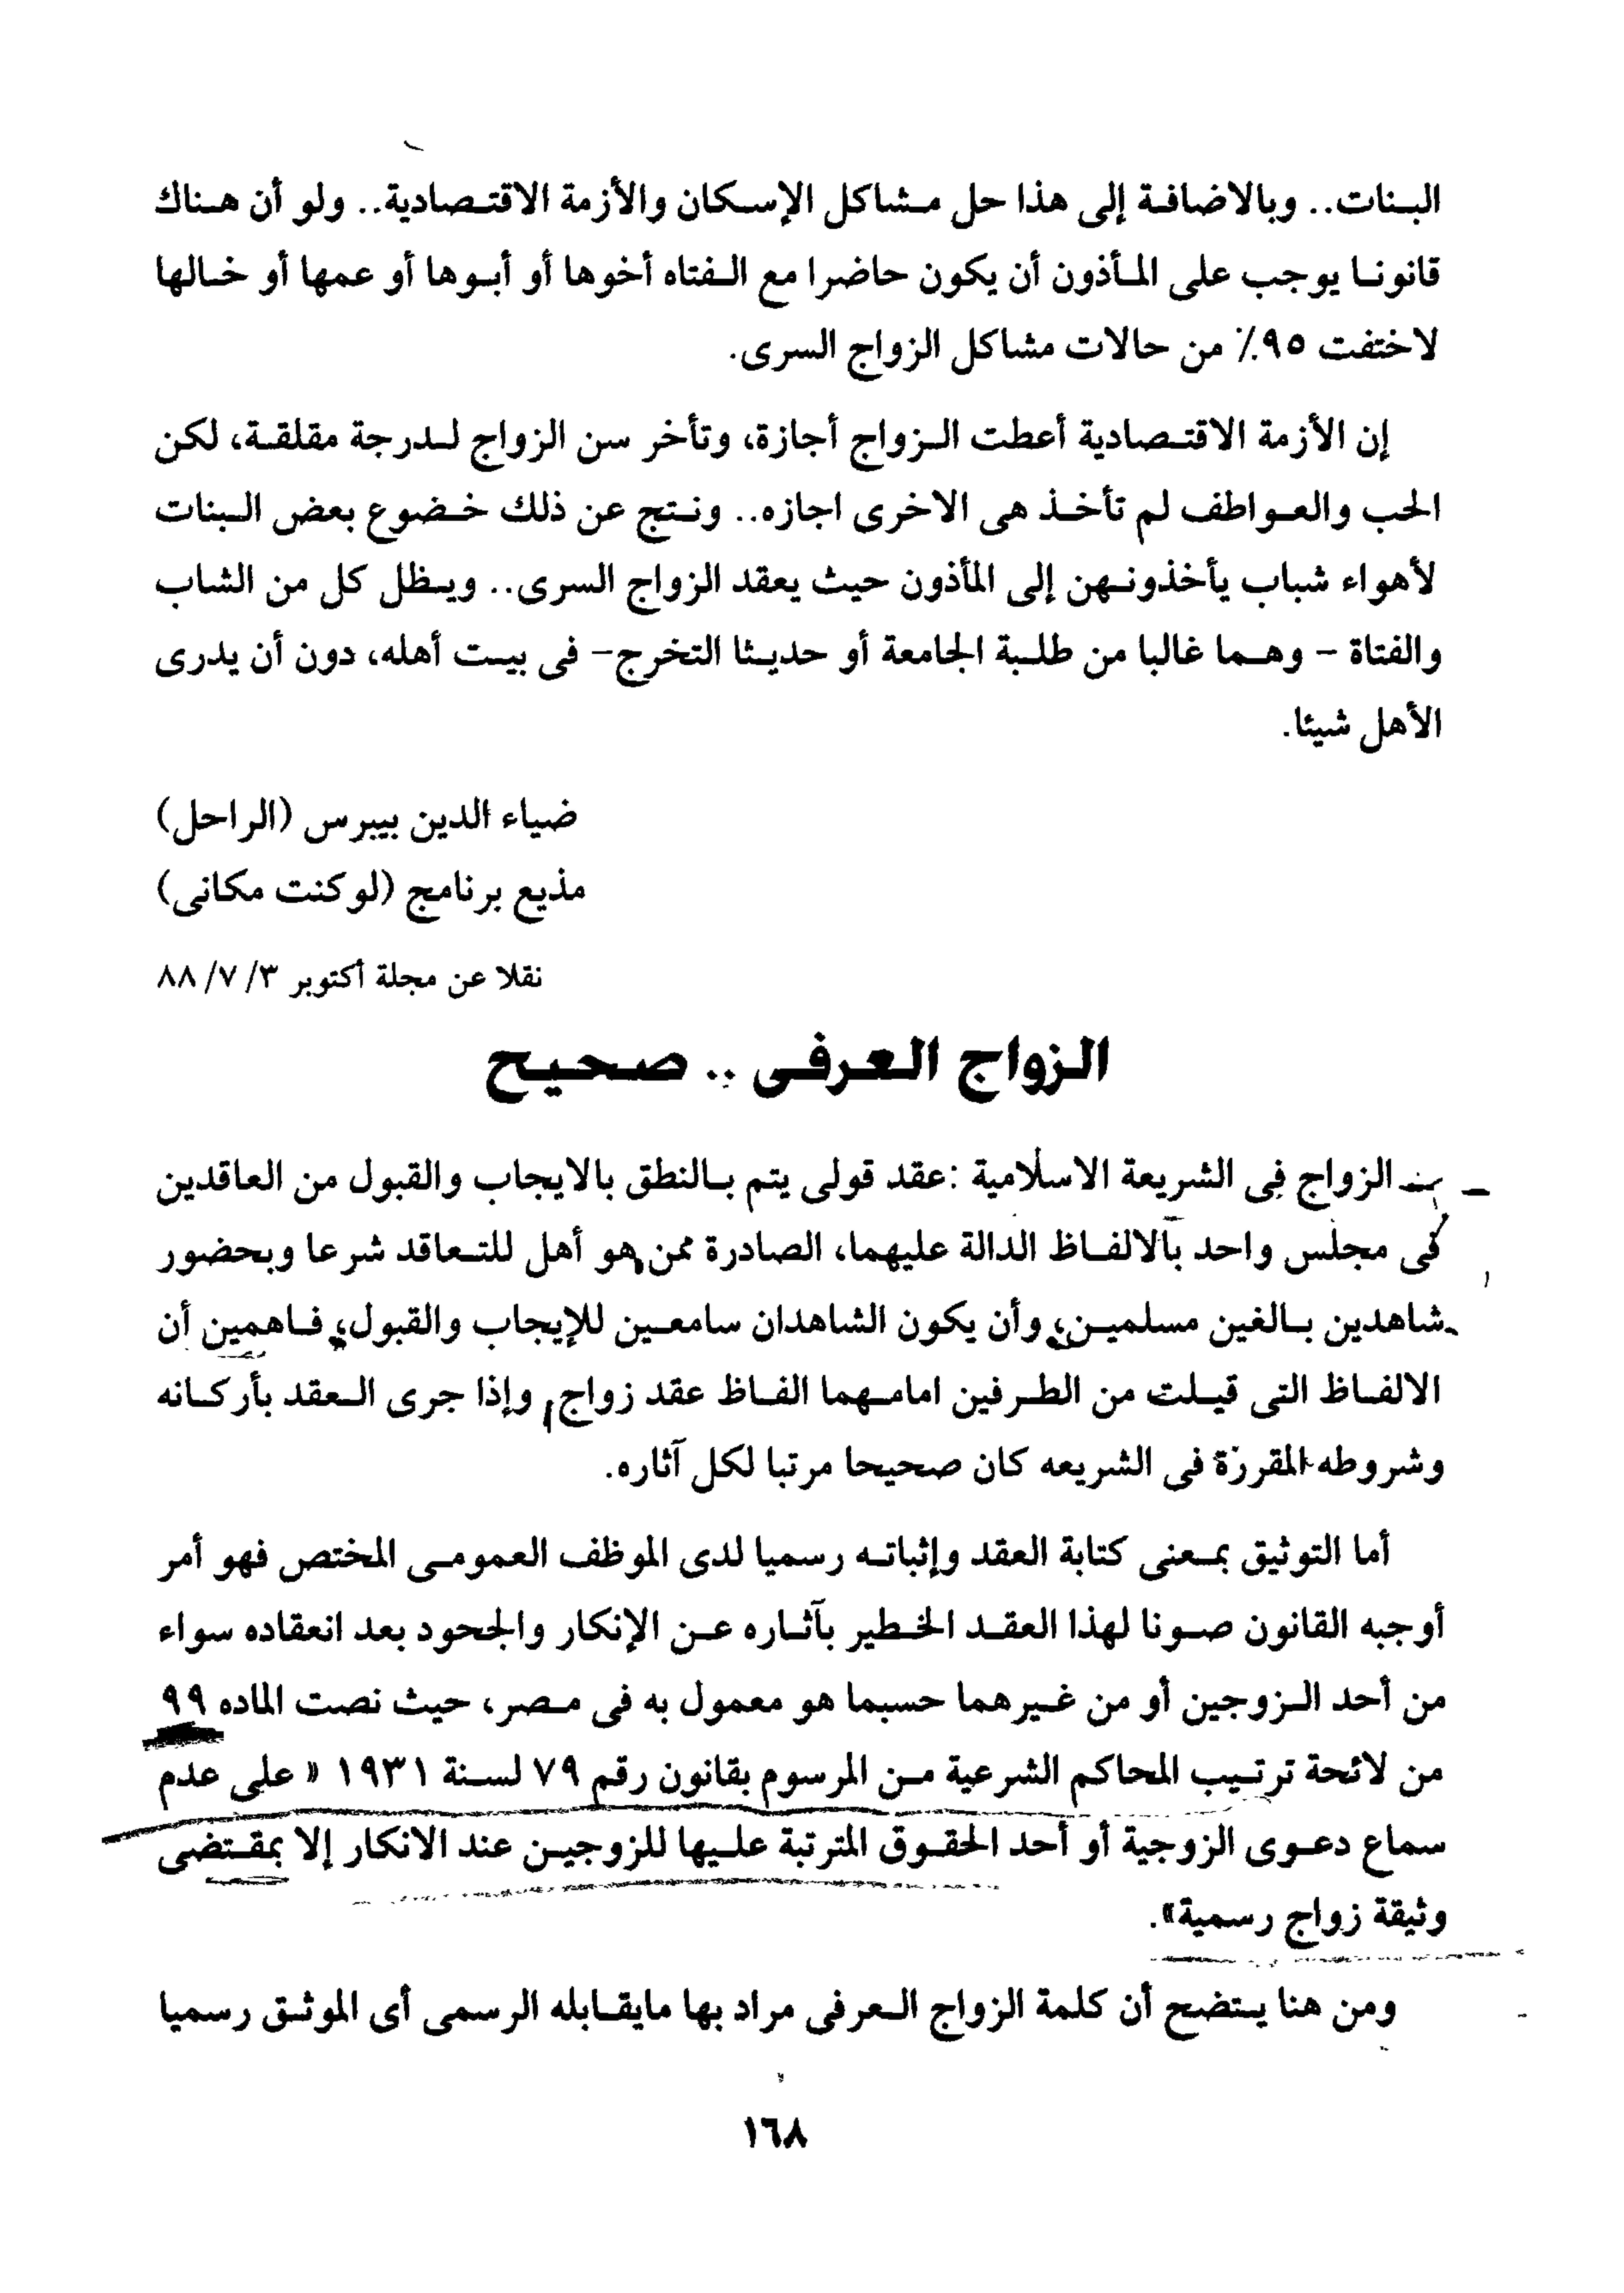 البنات.. وبالاضافة إلى هذا حل مشاكل الإسكان والأزمة الاقتصادية.. ولو أن هناك
قانونا يوجب على المأذون أن يكون حاضرا مع الفتاه أخوها أو أبوها أو عمها أو خالها
لاختفت ٩٥٪ من حالات مشاكل الزواج السرى.
إن الأزمة الاقتصادية أعطت الزواج أجازة، وتأخر سن الزواج لدرجة مقلقة، لكن
الحب والعواطف لم تأخذ هى الاخرى اجازه.. ونتج عن ذلك خضوع بعض البنات
لأهواء شباب يأخذونهن إلى المأذون حيث يعقد الزواج السرى.. ويظل كل من الشاب
والفتاة - وهما غالبا من طلبة الجامعة أو حديثا التخرج- فى بيت أهله، دون أن يدرى
الأهل شيئا.
ضياء الدين بيبرس (الراحل)
مذيع برنامج (لو كنت مكانى)
نقلا عن مجلة أكتوبر ٣/ ٧/ ٨٨
الزواج العرفى .. صحيح
الزواج فى الشريعة الاسلامية :عقد قولى يتم بالنطق بالايجاب والقبول من العاقدين
فى مجلس واحد بالالفاظ الدالة عليهما، الصادرة ممن هو أهل للتعاقد شرعا وبحضور
شاهدين بالغين مسلمين، وأن يكون الشاهدان سامعين للإيجاب والقبول، فاهمين أن
الالفاظ التى قيلت من الطرفين امامهما الفاظ عقد زواج، وإذا جرى العقد بأركانه
وشروطه المقررة فى الشريعه كان صحيحا مرتبا لكل آثاره.
أما التوثيق بمعنى كتابة العقد وإثباته رسميا لدى الموظف العمومى المختص فهو أمر
أوجبه القانون صونا لهذا العقد الخطير بآثاره عن الإنكار والجحود بعد انعقاده سواء
من أحد الزوجين أو من غيرهما حسبما هو معمول به فى مصر، حيث نصت الماده ٩٩
من لائحة ترتيب المحاكم الشرعية من المرسوم بقانون رقم ٧٩ لسنة ١٩٣١ « على عدم
سماع دعوى الزوجية أو أحد الحقوق المترتبة عليها للزوجين عند الانكار إلا بمقتضى
وثيقة زواج رسمية».
ومن هنا يتضح أن كلمة الزواج العرفى مراد بها مايقابله الرسمى أى الموثق رسميا
١٦٨